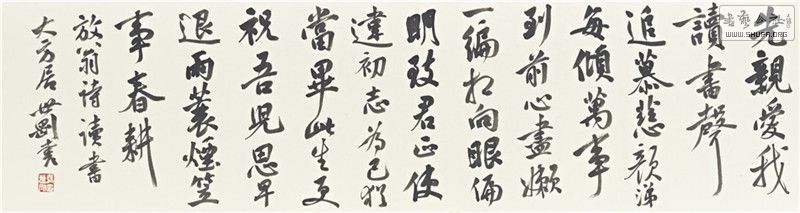 先親愛我
讀書聲
追慕慈顏涕
每傾萬事
到前心盡嬾
一編相向眼偏
明致君正使
違初志為己猶
當畢此生更
祝吾兒思早
退雨蓑煙笠
事春耕
放翁詩讀書
大方居世剛書
书艺公社
WWW.SHUFA.ORG